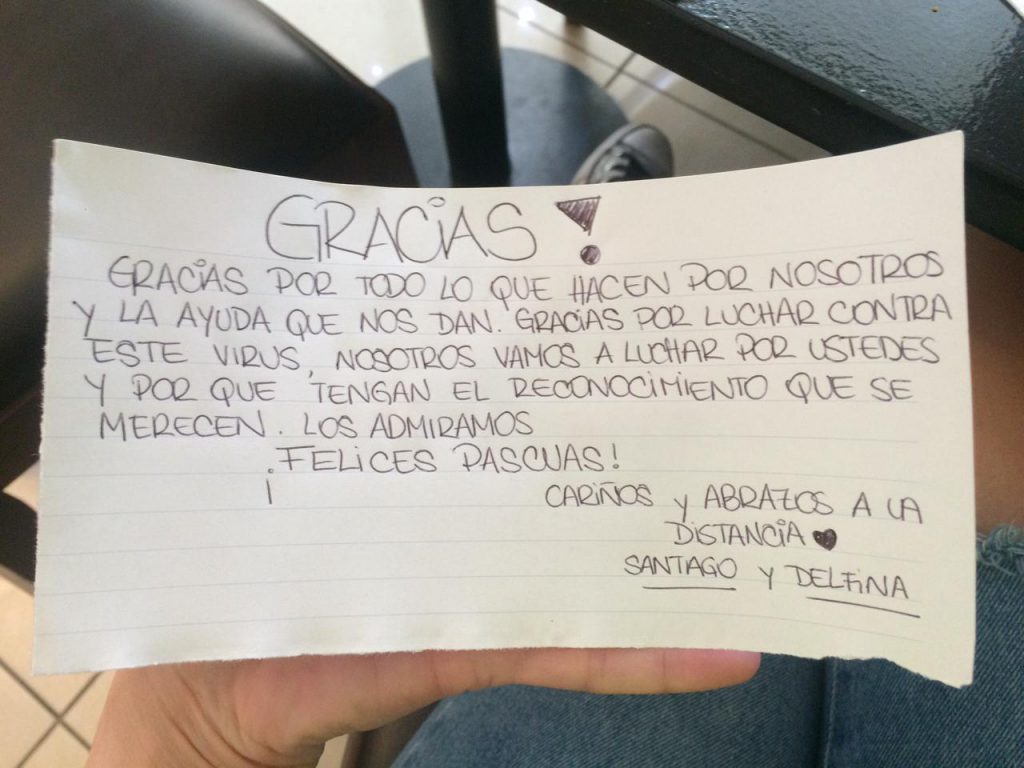 GRACIAS!
GRACIAS POR TODO LO QUE HACEN POR NOSOTROS
Y LA AYUDA QUE NOS DAN. GRACIAS POR LUCHAR CONTRA
ESTE VIRUS, NOSOTROS VAMOS A LUCHAR POR USTEDES
Y POR QUE TENGAN EL RECONOCIMIENTO QUE SE
MERECEN. LOS ADMIRAMOS
¡FELICES PASCUAS!
CARIÑOS y ABRAZOS A LA
DISTANCIA ♥
SANTAGO Y DELFINA